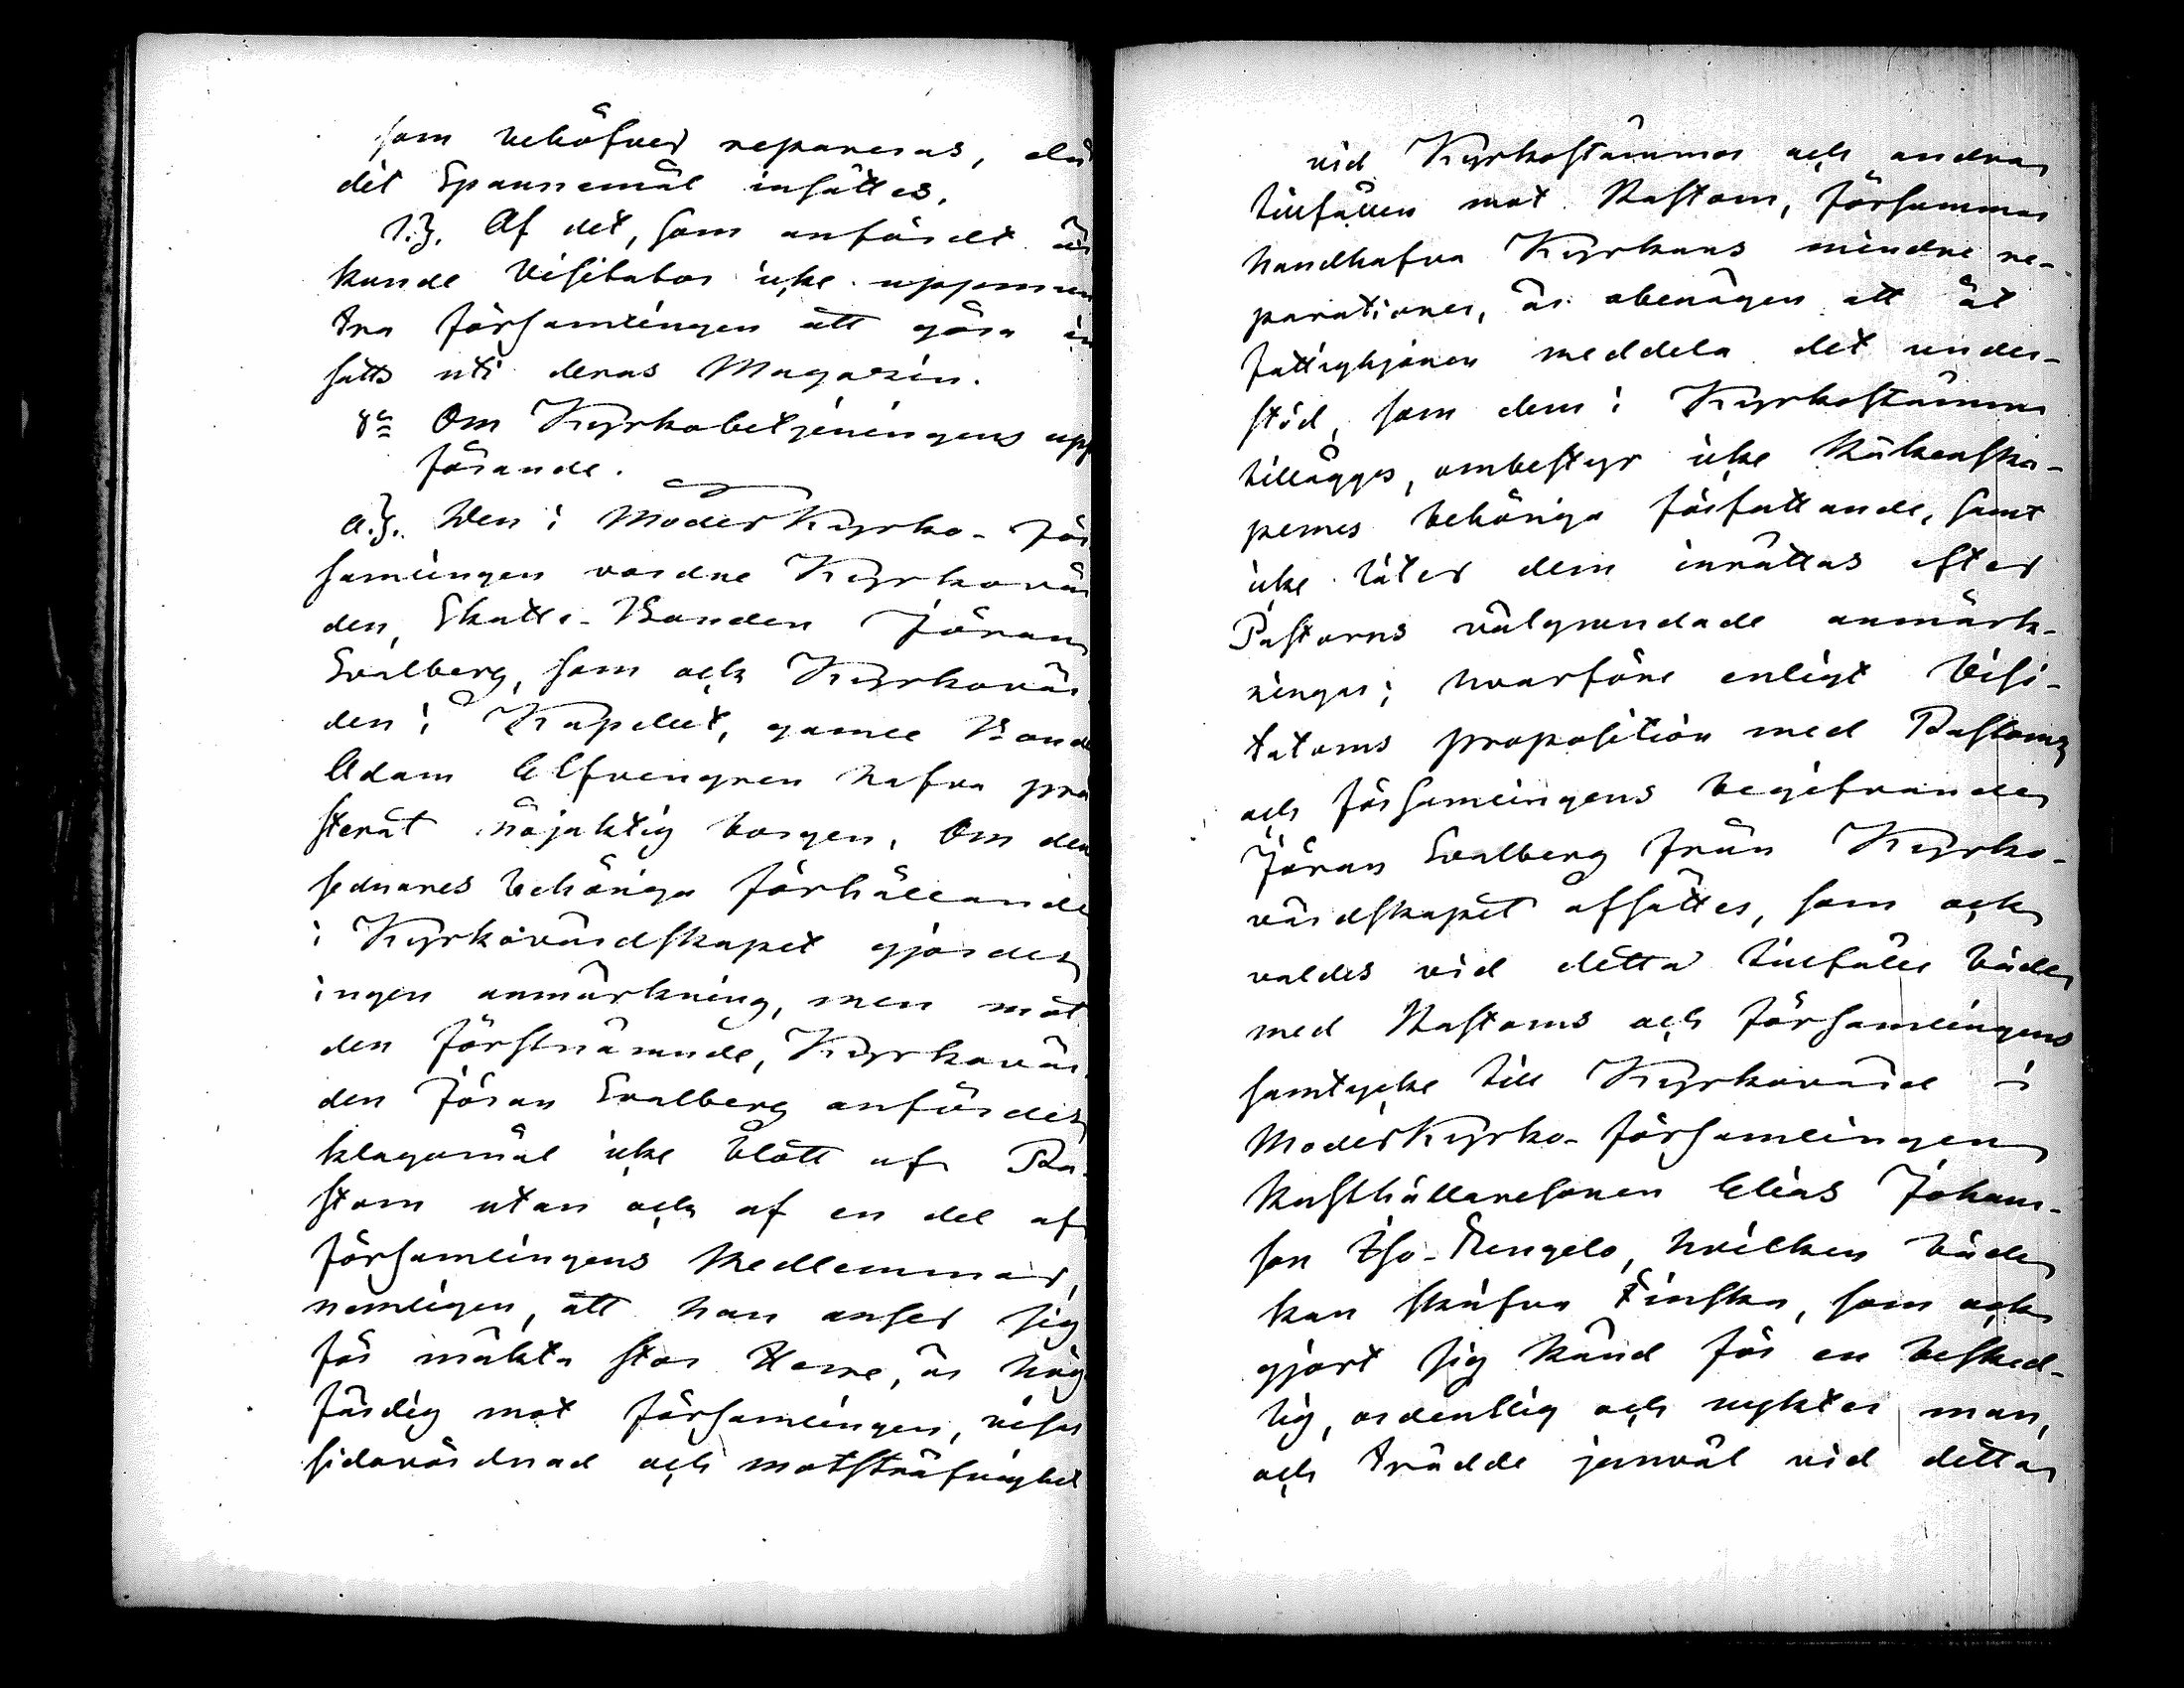 som behöfver repareras, då
dit Spannemål insättes.
1.) Af det, som anfördt är
kunde Visitator icke uppmun
tra församlingen att göra in
satts uti deras Magazin.
8:o Om Kyrkobetjeningens upp
förande.
a.) Den i Moderkyrko-För
samlingen vordne Kyrkovär
den, Skatte-Bonden Jöran
Svalberg, som ock Kyrkovär
den i Kapellet, gamle Bond
Adam Elfvengren hafva præ
sterat nöjaktig borgen. Om den
sednares behöriga förhållande
i Kyrkovärdskapet gjordes
ingen anmärkning, men mot
den förstnämnde, Kyrkovär
den Jöran Svalberg anfördes
klagomål icke blott af Pa-
storn utan och af en del af
församlingens Medlemmar,
nemligen, att han anser sig
för mäkta stor Herre, är hög
färdig mot församlingen, viser
sidovördnad och motsträfvighet
vid Kyrkostämmor och andra
tillfällen mot Pastorn, försummar
handhafva Kyrkans mindre re-
parationer, är obenägen att åt
fattighjonen meddela det under-
stöd, som dem i Kyrkostämma
tillägges, ombestyr icke Räkenska-
pernes behöriga författande, samt
icke låter dem inrättas efter
Pastorns välgrundade anmärk-
ningar; hvarföre enligt Visi-
tatorns proposition med Pastorns
och församlingens begifvande
Jöran Svalberg från Kyrko-
värdskapet afsättes, som ock
valdes vid detta tillfälle både
med Pastorns och församlingens
samtycke till Kyrkovärd i
Moderkyrko-församlingen
Rusthållaresonen Elias Johans-
son Iso-Rengelo, hvilken både
kan skrifva Finska, som ock
gjort sig känd för en besked-
lig, ordentlig och nykter man,
och trädde jemväl vid detta